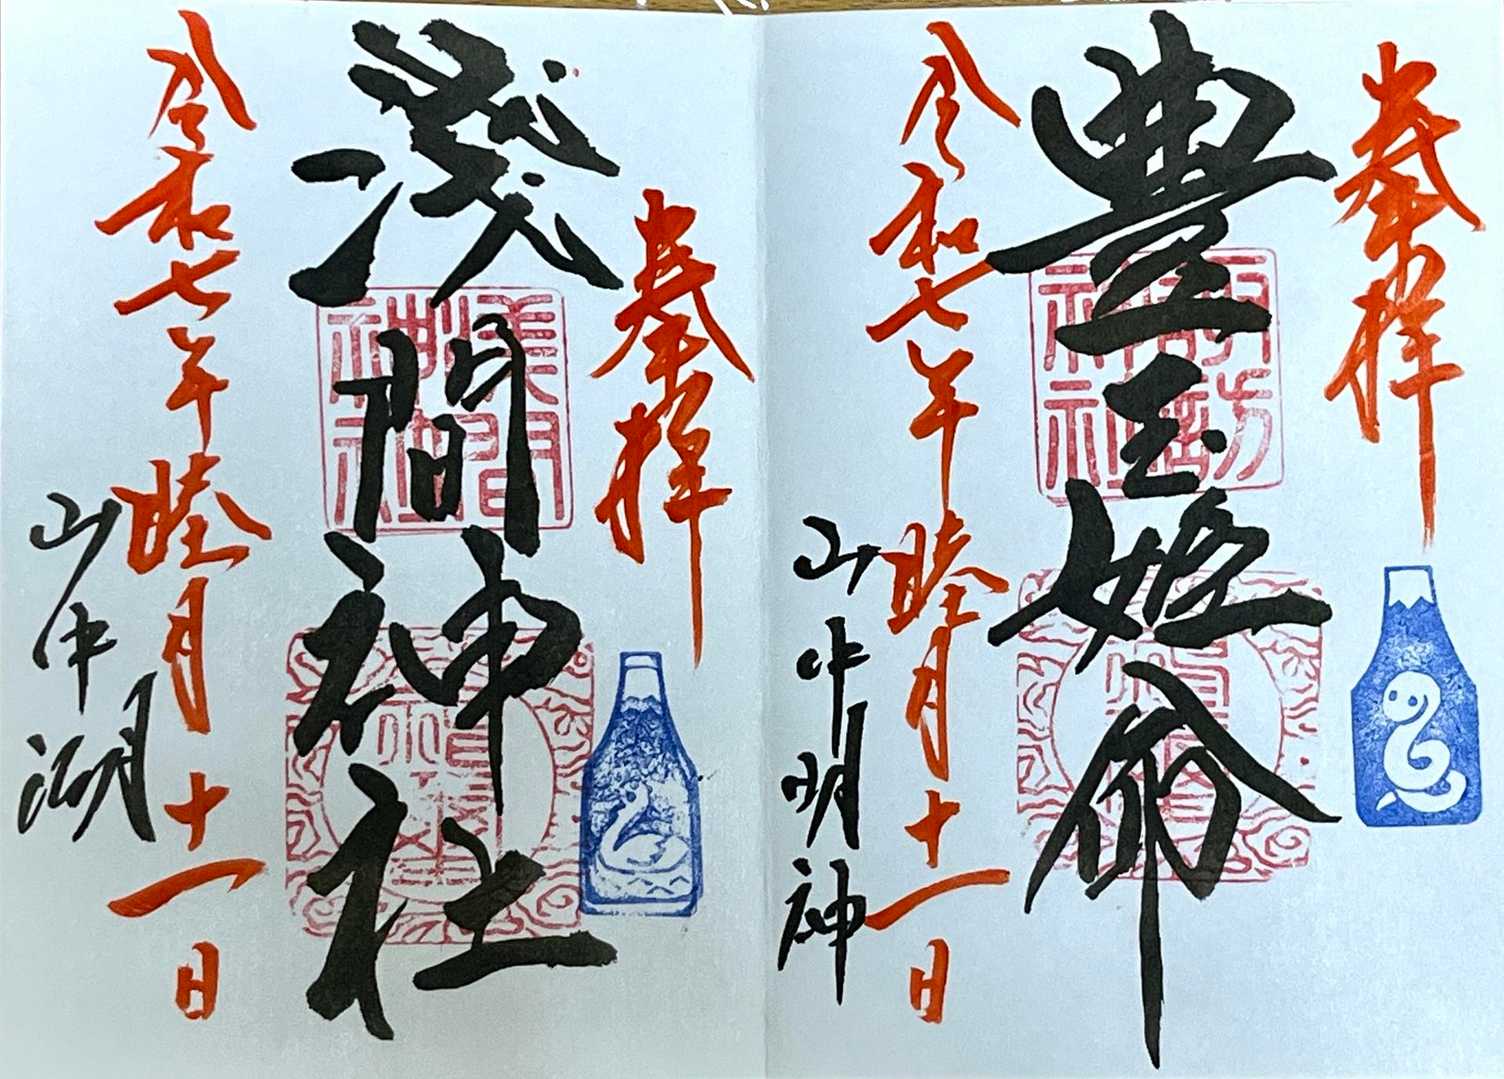 奉拝
豊玉姫命
令和七年睦月十一日
山中明神
諏訪神社
奉拝
浅間神社
令和七年睦月十一日
山中湖
浅間神社